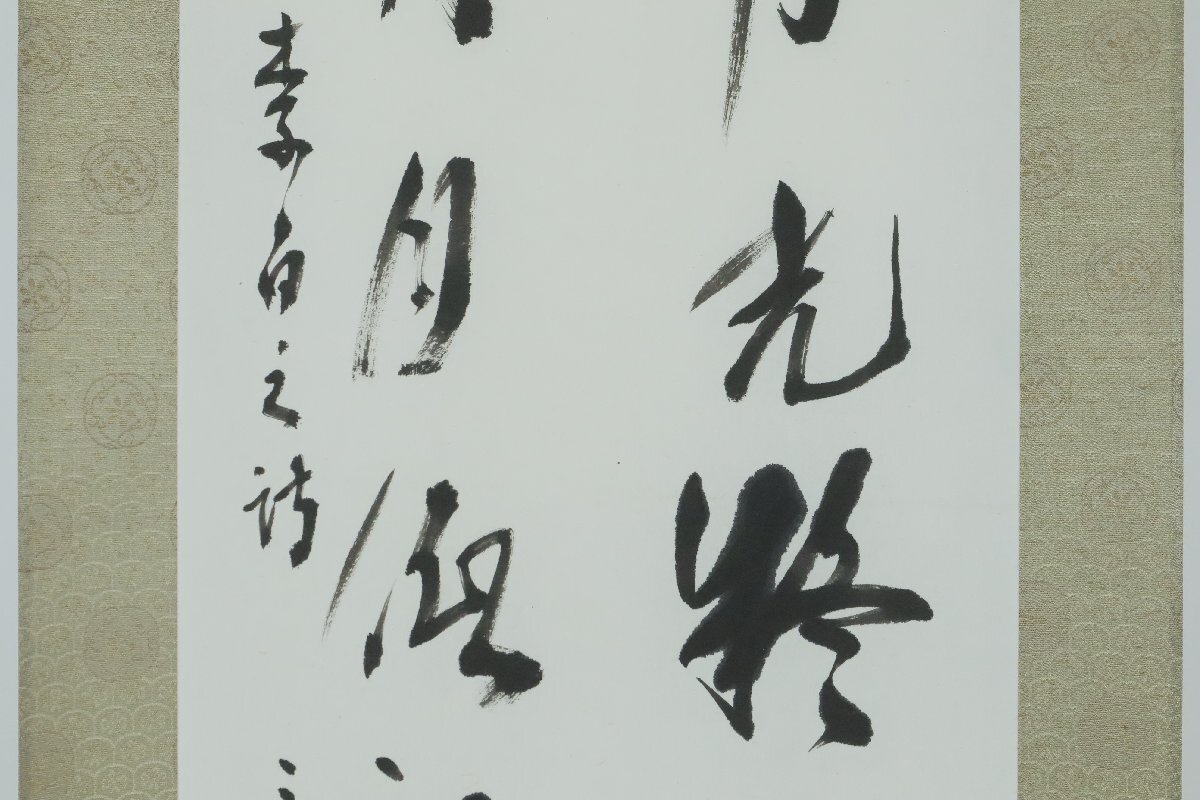 光疑
月低
李白之詩